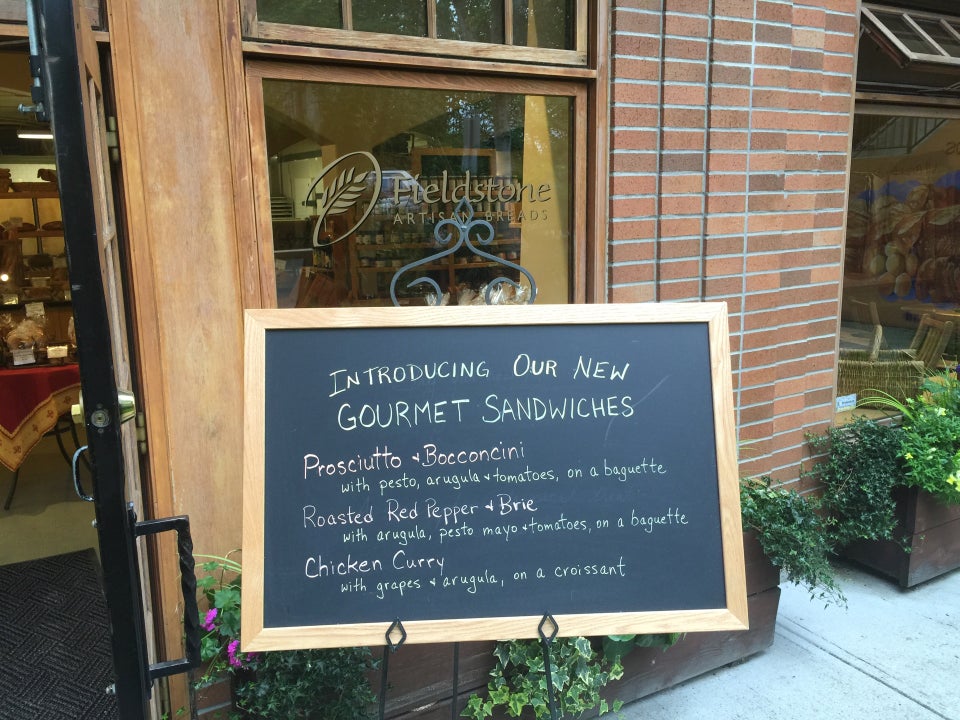 Fieldstone
ARTISAN BREADS
INTRODUCING OUR NEW
GOURMET SANDWICHES
Prosciutto + Bocconcini
with pesto, arugula + tomatoes, on a baguette
Roasted Red Pepper + Brie
with arugula, pesto mayo + tomatoes, on a baguette
Chicken Curry
with grapes + arugula, on a croissant